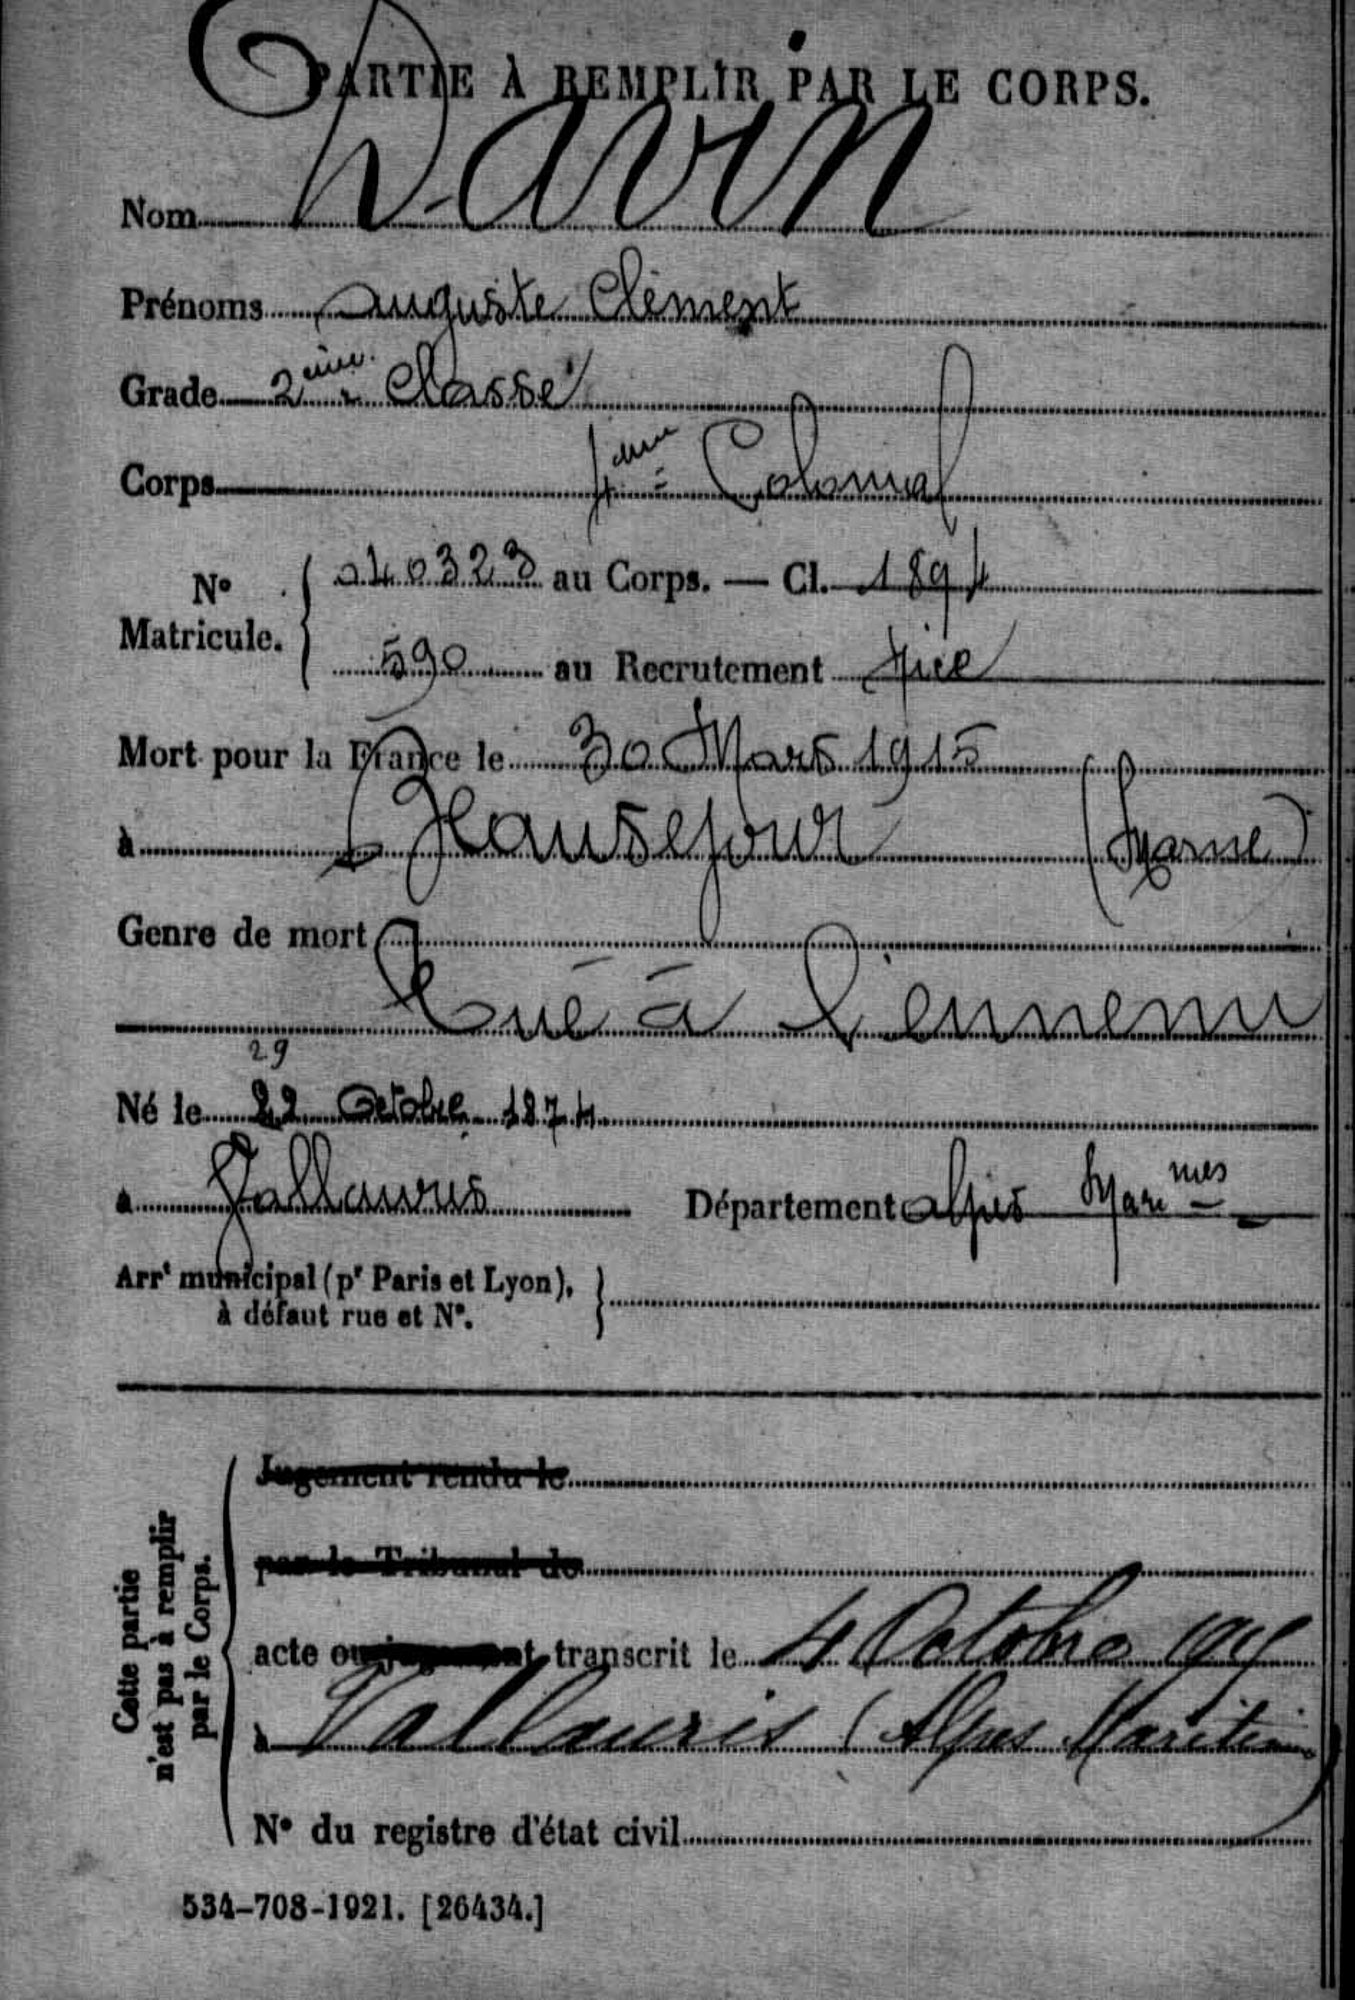 PARTIE À REMPLIR PAR LE CORPS.
Nom Davin
Prénoms Auguste Clément
Grade 2ème Classe
Corps 4ème Colonial
N° Matricule. 040323 au Corps. — Cl. 1894
590 au Recrutement Nice
Mort pour la France le 30 Mars 1915
à Beauséjour (Marne)
Genre de mort
Tué à l'ennemi
29
Né le 22 Octobre 1874
à Vallauris Département Alpes Mari mes
Arrt municipal (pr Paris et Lyon),
à défaut rue et N°.
Cette partie
n'est pas à remplir
par le Corps.
Jugement rendu le
par le Tribunal de
acte ou jugement transcrit le 4 Octobre
à Vallauris (Alpes Maritimes)
N° du registre d'état civil
534-708-1921. [26434.]